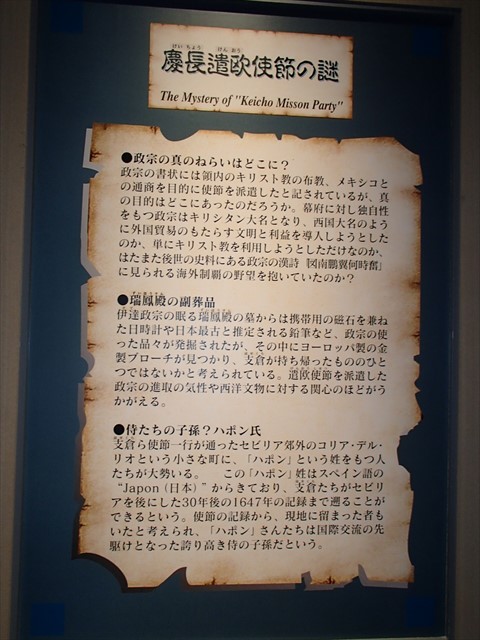 慶長遣欧使節の謎
The Mystery of "Keicho Misson Party"
●政宗の真のねらいはどこに？
政宗の書状には領内のキリスト教の布教、メキシコと
の通商を目的に使節を派遣したと記されているが、真
の目的はどこにあったのだろうか。幕府に対し独自性
をもつ政宗はキリシタン大名となり、西国大名のよう
に外国貿易のもたらす文明と利益を導入しようとした
のか、単にキリスト教を利用しようとしただけなのか、
はたまた後世の史料にある政宗の漢詩「図南鵬翼何時奮」
に見られる海外制覇の野望を抱いていたのか？
●瑞鳳殿の副葬品
伊達政宗の眠る瑞鳳殿の墓からは携帯用の磁石を兼ね
た日時計や日本最古と推定される鉛筆など、政宗の使
った品々が発掘されたが、その中にヨーロッパ製の金
製ブローチが見つかり、支倉が持ち帰ったもののひと
つではないかと考えられている。遣欧使節を派遣した
政宗の進取の気性や西洋文物に対する関心のほどがう
かがえる。
●侍たちの子孫？ハポン氏
支倉ら使節一行が通ったセビリア郊外のコリア・デル・
リオという小さな町に、「ハポン」という姓をもつ人
たちが大勢いる。　この「ハポン」姓はスペイン語の
“Japon（日本）”からきており、支倉たちがセビリ
アを後にした30年後の1647年の記録まで遡ることが
できるという。使節の記録から、現地に留まった者も
いたと考えられ、「ハポン」さんたちは国際交流の先
駆けとなった誇り高き侍の子孫だという。